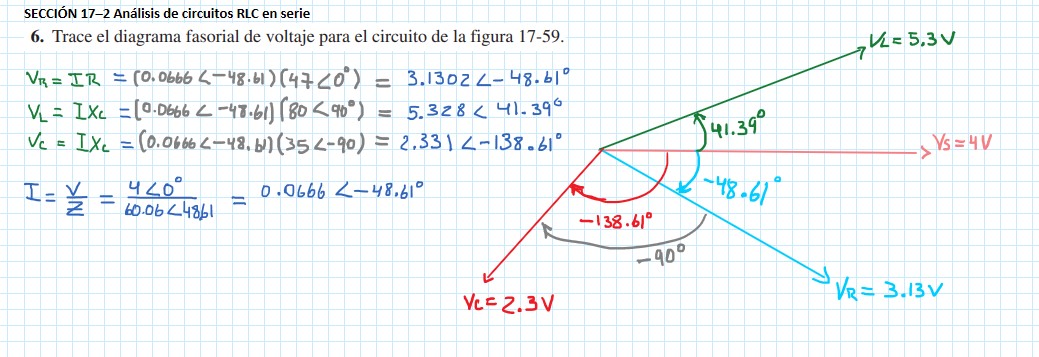 SECCIÓN 17–2 Análisis de circuitos RLC en serie
6. Trace el diagrama fasorial de voltaje para el circuito de la figura 17-59.
VR = IR = (0.0666 ∠-48.61)(47∠0°) = 3.1302∠-48.61°
VL = IXC = [0.0666 ∠-48.61](80∠90°) = 5.328∠41.39°
VC = IXC = (0.0666∠-48.61)(35∠-90) = 2.331∠-138.61°
I = V/Z = 4∠0°/60.06∠48.61 = 0.0666∠-48.61°
VL = 5.3V
41.39°
VS = 4V
-48.61°
-138.61°
-90°
VR = 3.13V
VC = 2.3V